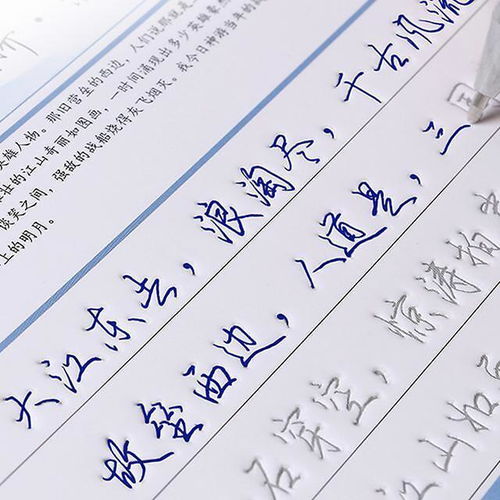 英雄人物。那旧营垒的西边，人们说那就是
壮的江山奇丽如图画，一时间涌现出多少英雄豪
谈笑之间，强敌的战船烧得灰飞烟灭。我今日神游当年的
上的明月。
大江东去，浪淘尽，千古风流
故垒西边，人道是，三国
石穿空，惊涛拍
江山如